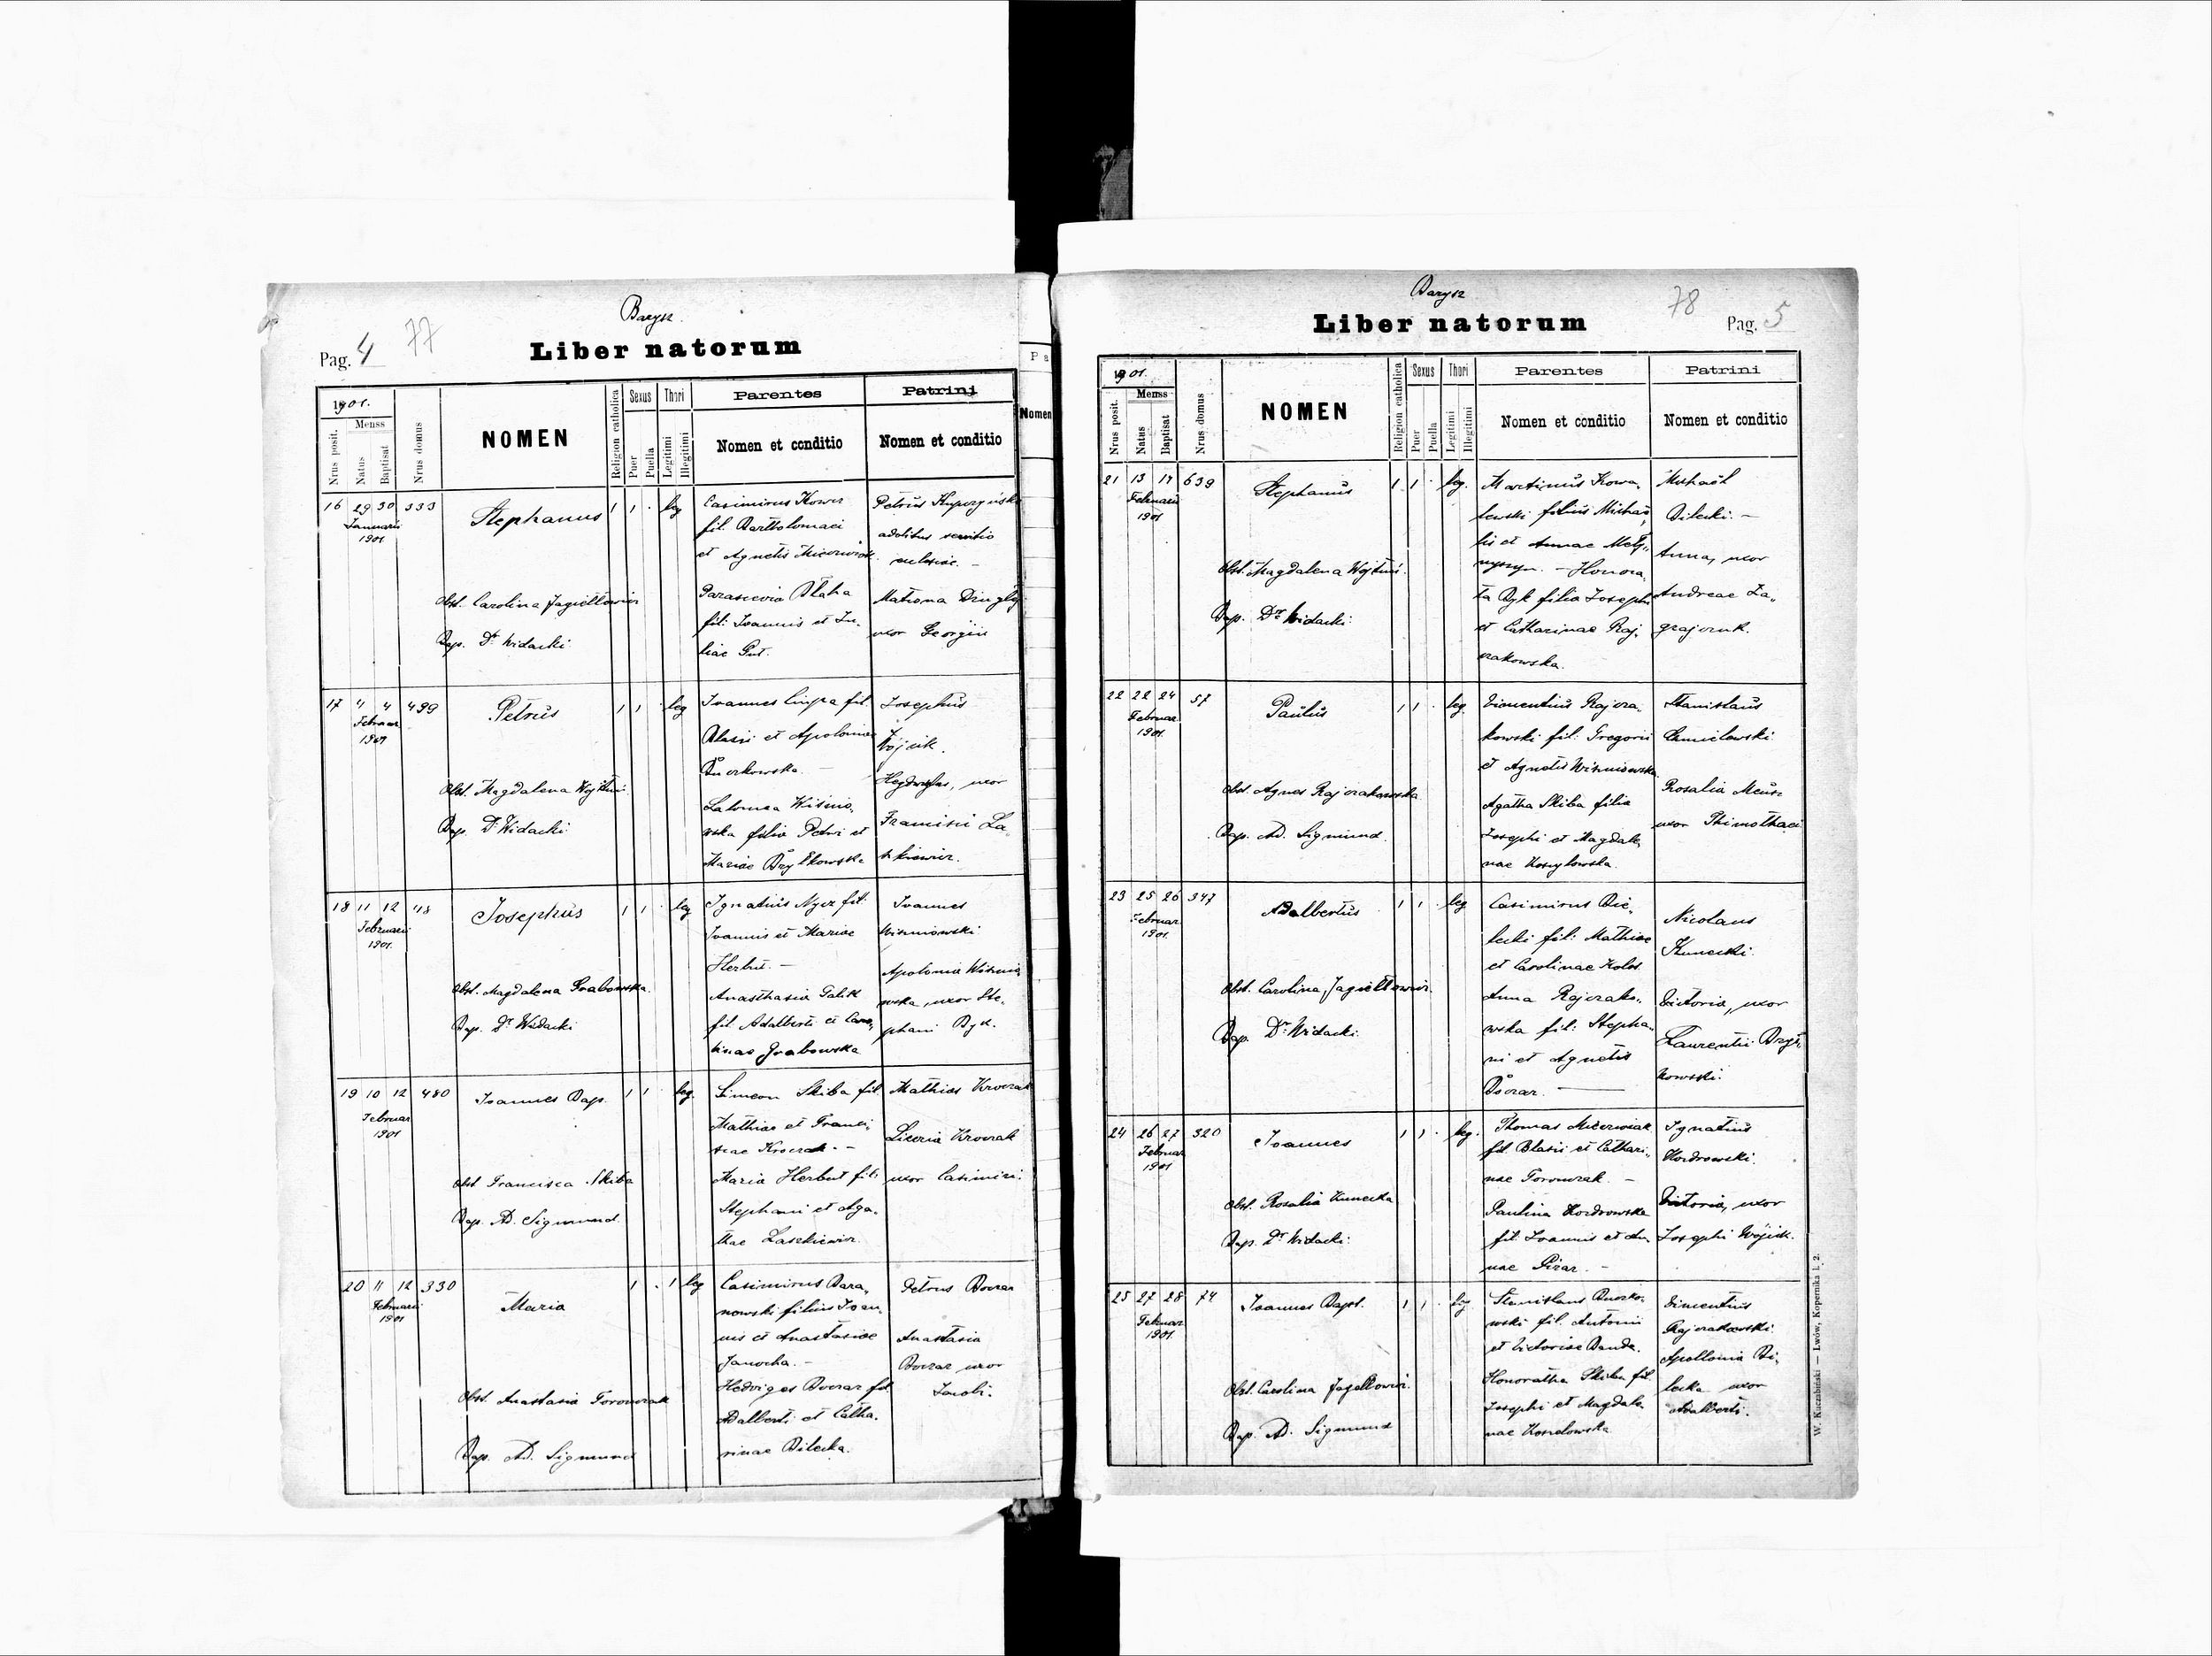 Barysz
Liber natorum
Pag. 4
77
1901.
Menss
Nrus posit.
Natus
Baptisat
Nrus domus
NOMEN
Religion catholica
Sexus
Puer
Puella
Thori
Legitimi
Illegitimi
Parentes
Nomen et conditio
Patrini
Nomen et conditio
16 29 30 333
Januarii
1901
Stephanus
1 1 . leg
Obst. Carolina Jagiełłowicz
Bap. Dr Widacki
Casimirus Kowcz
fil. Bartholomaei
et Agnetis Mierzwiak
Parascevia Blaha
fil: Ioannis et Ju-
liae Gut.
Petrus
adolitus servitio
ecclesiae. -
Matrona
uxor Georgii
17 4 4 499
Februar
1901
Petrus
1 1 leg
Obst. Magdalena Wojtuń
Bap. Dr Widacki
Ioannes Cinpa fil.
Blasii et Apoloniae
Burkowska. -
Salomea Wiśnio-
wska filia Petri et
Mariae Bryłkowska
Josephus
Wójcik.
Hedwigas, uxor
Francisci La-
szkiewicz.
18 11 12 48
Februarii
1901.
Josephus
1 1 . leg
Obst. Magdalena Grabowska
Bap. Dr Widacki
Ignatius Nycz fil.
Ioannis et Mariae
Herbut. -
Anasthasia Galik
fil. Adalberti et Caro-
linae Grabowska
Ioannes
Wiszniowski
Apolonia Wisznio-
wska, uxor Ste-
phani Byk.
19 10 12 480
Februar
1901
Ioannes Bap.
1 1 . leg.
Obst Francisca Skiba
Bap. Ad. Sigmund
Simeon Skiba fil
Mathiae et Franci-
scae Kroczak. -
Maria Herbut fil:
Stephani et Aga-
thae Laszkiewicz.
Mathias Kroczak
Kroczak
uxor Casimiri.
20 11 12 330
Februarii
1901
Maria
1 . 1 leg
Obst. Anastasia Toroniczak
Bap. Ad. Sigmund
Casimirus Bara-
nowski filius Ioan-
nis et Anastasiae
Janocha. -
Hedviges Boczar fil.
Adalberti et Catha-
rinae Bilecka.
Petrus Boczar
Anastasia
Boczar uxor
Jacobi.
Barysz
Liber natorum
78
Pag. 5
1901.
Menss
Nrus posit.
Natus
Baptisat
Nrus domus
NOMEN
Religion catholica
Sexus
Puer
Puella
Thori
Legitimi
Illegitimi
Parentes
Nomen et conditio
Patrini
Nomen et conditio
21 13 14 639
Februarii
1901
Stephanus
1 1 . leg.
Obst. Magdalena Wojtuń.
Bap. Dr Widacki
Martinus Kowa-
lewski filius Michaë-
lis et Annae
Honora-
ta Byk filia Josephi
et Catharinae Raj-
czakowska.
Michaël
Bilecki. -
Anna, uxor
Andreae Za-
grajczuk.
22 22 24 57
Februar
1901.
Paulus
1 1 . leg.
Obst. Agnes Rajczakowska
Bap. Ad. Sigmund.
Vincentius Rajcza-
kowski fil: Gregorii
et Agnetis Wiszniowska
Agatha Skiba filia
Josephi et Magdale-
nae
Stanislaus
Chmielowski.
Rosalia
uxor Thimothaei
23 25 26 347
Februar
1901.
Adalbertus
1 1 . leg
Obst. Carolina Jagiełłowicz.
Bap. Dr Widacki
Casimirus Bie-
lecki fil: Mathiae
et Carolinae Kolos.
Anna Rajczako-
wska fil: Stepha-
ni et Agnetis
Boczar.
Nicolaus
Kunecki.
Victoria, uxor
Laurentii Brył-
kowski.
24 26 27 320
Februar
1901
Ioannes
1 1 . leg.
Obst. Rosalia Kunecka
Bap. Dr Widacki.
Thomas Mierzwiak
fil. Blasii et Cathari-
nae Toronczak. -
Paulina Kozdrowska
fil. Ioannis et An-
nae Pizar. -
Ignatius
Kozdrowski.
Victoria, uxor
Josephi Wójcik.
25 27 28 74
Februar
1901.
Ioannes Bapt.
1 1 . leg.
Obst. Carolina Jagełłowicz.
Bap. Ad. Sigmund
Stanislaus Burko-
wski fil. Antonii
et Victoriae Banda.
Honoratha Skiba fil
Josephi et Magdale-
nae
Vincentius
Rajczakowski.
Apollonia Bi-
lecka uxor
Adalberti.
W. Kuczabiński — Lwów, Kopernika l. 2.